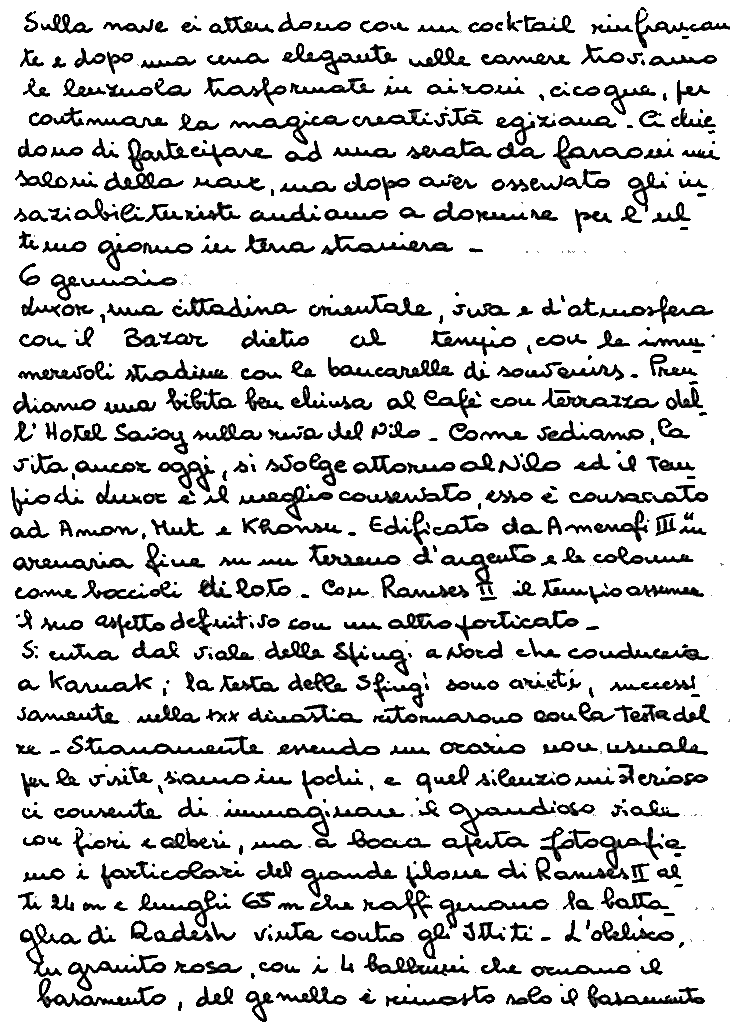 Sulla nave ci attendono con un cocktail rinfrancan
te e dopo una cena elegante nelle camere troviamo
le lenzuola trasformate in aironi, cicogne, per
continuare la magica creatività egiziana. Ci chie
dono di partecipare ad una serata da faraoni nei
saloni della nave, ma dopo aver osservato gli in
saziabili turisti andiamo a dormire per l'ul
timo giorno in terra straniera -
6 gennaio
Luxor, una cittadina orientale, viva e d'atmosfera
con il Bazar dietro al tempio, con le innu
merevoli stradine con le bancarelle di souvenirs. Pren
diamo una bibita ben chiusa al Cafè con terrazza del
l'Hotel Savoy sulla riva del Nilo. Come vediamo, la
vita, ancor oggi, si svolge attorno al Nilo ed il Tem
pio di Luxor è il meglio conservato, esso è consacrato
ad Amon, Mut e Khonsu. Edificato da Amenofi III in
arenaria fine su un terreno d'argento e le colonne
come boccioli di loto. Con Ramses II il tempio assume
il suo aspetto definitivo con un altro porticato -
Si entra dal viale delle Sfingi a Nord che conduceva
a Karnak; la testa delle Sfingi sono arieti, successi
vamente nella xxx dinastia ritornarono con la Testa del
re. Stranamente essendo un orario non usuale
per le visite, siamo in pochi, e quel silenzio misterioso
ci consente di immaginare il grandioso viale
con fiori e alberi, ma a bocca aperta fotografia
mo i particolari del grande pilone di Ramses II al
ti 24 m e lunghi 65 m che raffigurano la batta
glia di Qadesh vinta contro gli Ittiti - L'obelisco,
in granito rosa, con i 4 babbuini che ornano il
basamento, del gemello è rimasto solo il basamento